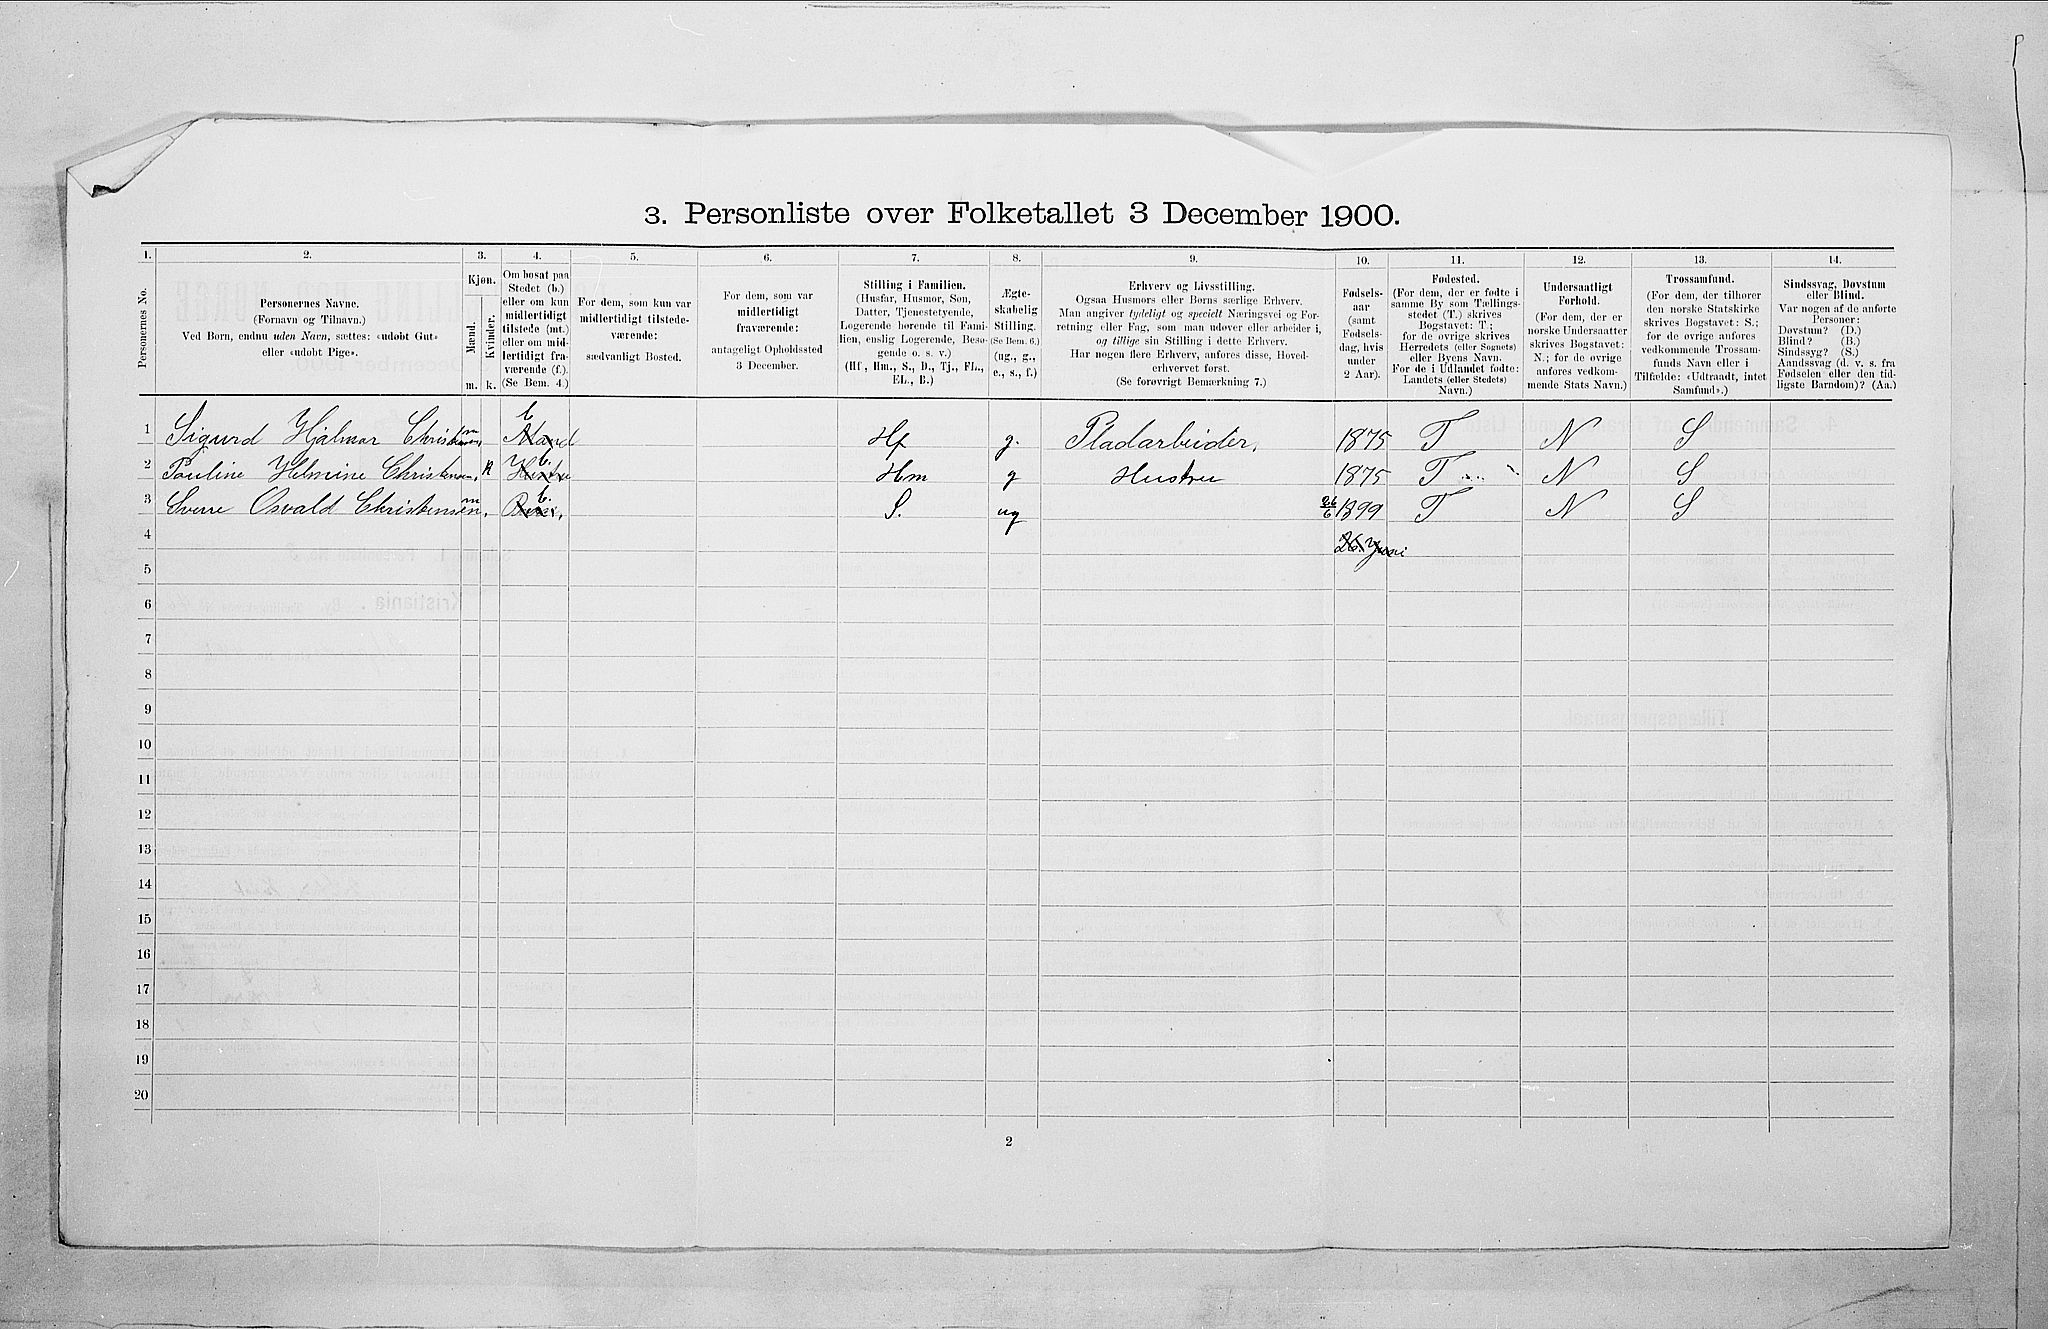 3. Personliste over Folketallet 3 December 1900.
1. 2. 3. 4. 5. 6. 7. 8. 9. 10. 11. 12. 13. 14.
Personernes No.
Personernes Navne.
(Fornavn og Tilnavn.)
Ved Børn, endnu uden Navn, sættes: «udøbt Gut»
eller «udøbt Pige».
Kjøn.
Mænd.
Kvinder.
m. k.
Om bosat paa
Stedet (b.)
eller om kun
midlertidigt
tilstede (mt.)
eller om mid-
lertidigt fra-
værende (f.).
(Se Bem. 4.)
For dem, som kun var
midlertidigt tilstede-
værende:
sædvanligt Bosted.
For dem, som var
midlertidigt
fraværende:
antageligt Opholdssted
3 December.
Stilling i Familien.
(Husfar, Husmor, Søn,
Datter, Tjenestetyende,
Logerende hørende til Fami-
lien, enslig Logerende, Besø-
gende o. s. v.)
(Hf., Hm., S., D., Tj., FL.,
EL., B.)
Ægte-
skabelig
Stilling.
(Se Bem. 6.)
(ug., g.,
e., s., f.)
Erhverv og Livsstilling.
Ogsaa Husmors eller Børns særlige Erhverv.
Man angiver tydeligt og specielt Næringsvei og For-
retning eller Fag, som man udøver eller arbeider i,
og tillige sin Stilling i dette Erhverv.
Har nogen flere Erhverv, anføres disse, Hoved-
erhvervet først.
(Se forøvrigt Bemærkning 7.)
Fødsels-
aar
(samt
Fødsels-
dag, hvis
under
2 Aar).
Fødested.
(For dem, der er fødte i
samme By som Tællings-
stedet (T.) skrives
Bogstavet: T.;
for de øvrige skrives
Herredets (eller Sognets)
eller Byens Navn.
For de i Udlandet fødte:
Landets (eller Stedets)
Navn.)
Undersaatligt
Forhold.
(For dem, der er
norske Undersaatter
skrives Bogstavet:
N.; for de øvrige
anføres vedkom-
mende Stats Navn.)
Trossamfund.
(For dem, der tilhører
den norske Statskirke
skrives Bogstavet: S.;
for de øvrige anføres
vedkommende Trossam-
funds Navn eller i
Tilfælde: «Udtraadt, intet
Samfund».)
Sindssvag, Døvstum
eller Blind.
Var nogen af de anførte
Personer:
Døvstum? (D.)
Blind? (B.)
Sindssyg? (S.)
Aandssvag (d. v. s. fra
Fødselen eller den tid-
ligste Barndom)? (Aa.)
1 Sigurd Hjalmar Christensen, m b Mand Hf g. Pladarbeider, 1875 T N S
2 Pauline Helmine Christensen, k b. Hustru Hm g Hustru 1875 T N S
3 Sverre Osvald Christensen. m b. Barn, S. ug 26/6 1899 T N S
4 26. Juni
5
6
7
8
9
10
11
12
13
14
15
16
17
18
19
20
2